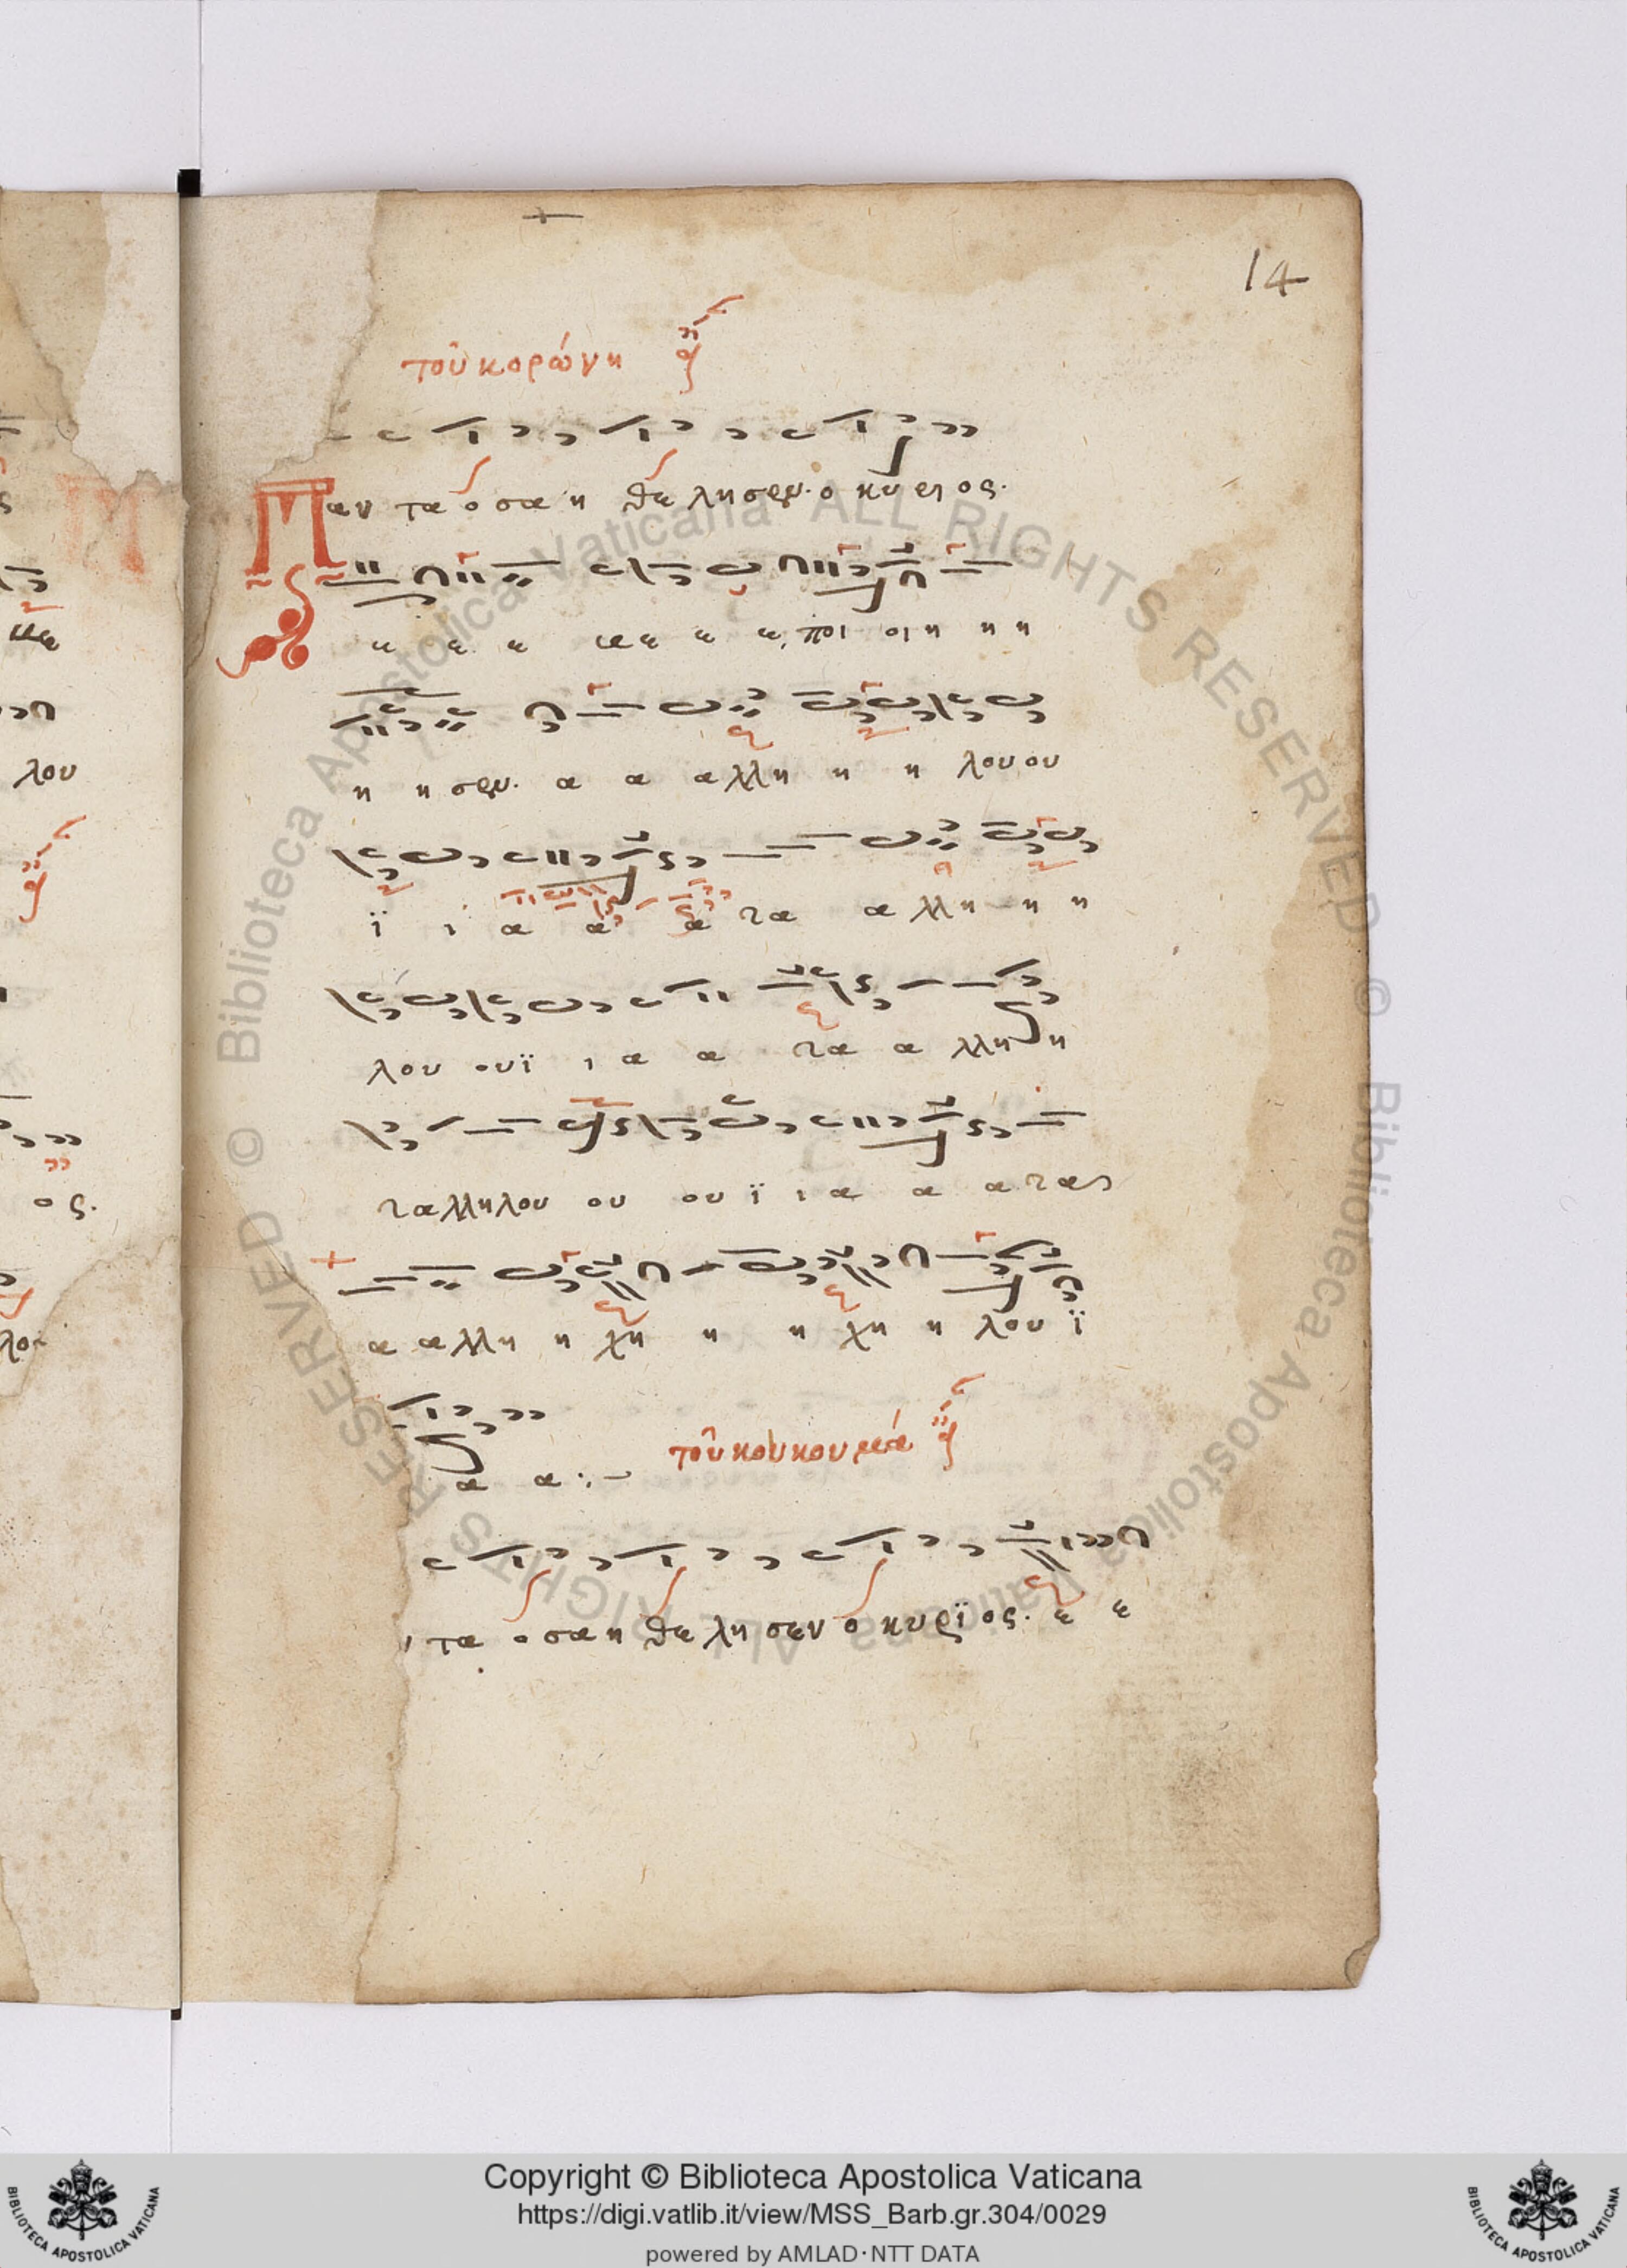 14
τοῦ κορώνη
Παν τα ο σα η θε λησεν· ο κυ ρι ος·
ε ε ε με ε ε, ποι οι η η η
η η σεν· α α αλλη η η λου ου
λου
ϊ ι α α α τα α λλη η η
λου ουϊ ι α α τα α λλη η
ταλληλου ου ου ϊ ι α α α τα
ος·
α αλλη η χη η η χη η λου ϊ
α α :-
τοῦ κουκουμᾶ
τα ο σα η θε λη σεν ο κυρϊ ος· ε ε
© Biblioteca Apostolica Vaticana ALL RIGHTS RESERVED © Biblioteca Apostolica Vaticana ALL RIGHTS RESERVED
Copyright © Biblioteca Apostolica Vaticana
https://digi.vatlib.it/view/MSS_Barb.gr.304/0029
powered by AMLAD·NTT DATA
BIBLIOTECA APOSTOLICA VATICANA
BIBLIOTECA APOSTOLICA VATICANA